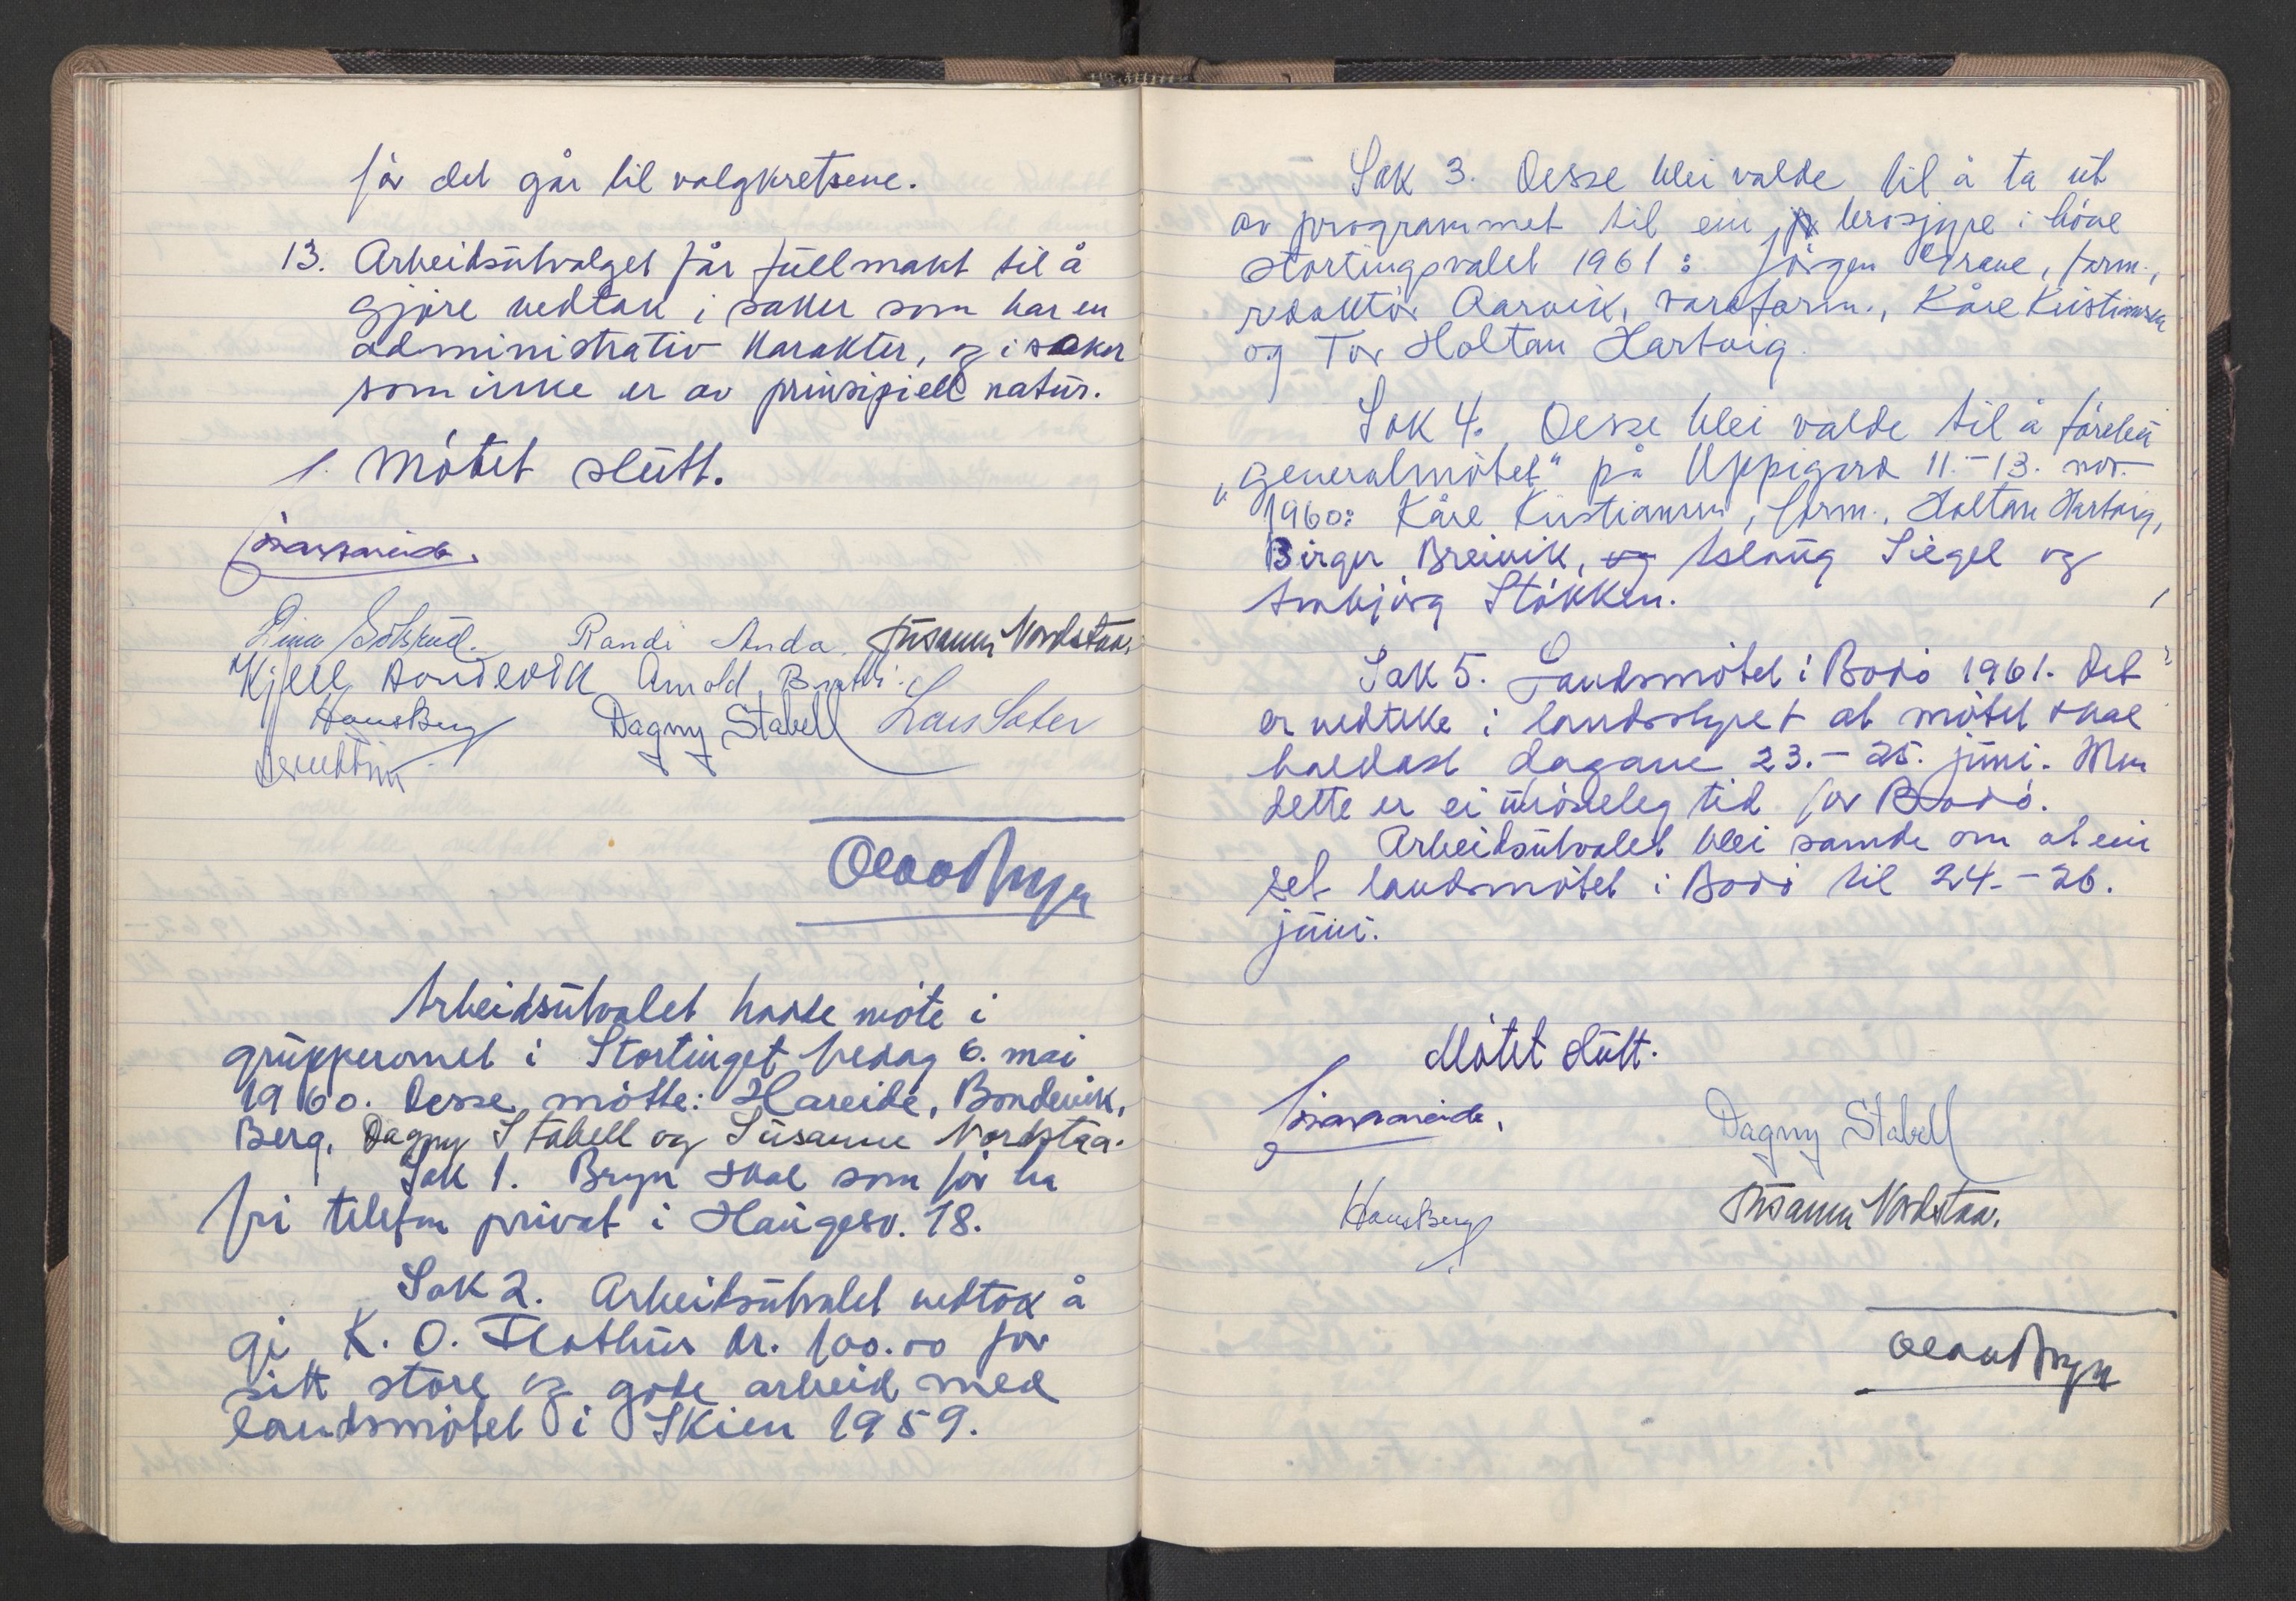 før det går til valgkretsene.
13. Arbeidsutvalget får fullmakt til å
gjøre vedtak i saker som har en
administrativ karakter, og i saker
som ikke er av prinsipiell natur.
Møtet slutt.
Randi Anda. Susanne Nordstaa.
Kjell Bondevik Arnold
Hans Berg Dagny Stabell Lars Sæter
Olav Bryn
Arbeidsutvalet hadde møte i
grupperomet i Stortinget fredag 6. mai
1960. Desse møtte: Hareide, Bondevik,
Berg, Dagny Stabell og Susanne Nordstaa.
Sak 1. Bryn skal som før ha
fri telefon privat i Haugesv. 18.
Sak 2. Arbeidsutvalet vedtok å
gi K. O. Flathus kr. 100.00 for
sitt store og gode arbeid med
landsmøtet i Skien 1959.
Sak 3. Desse blei valde til å ta ut
av programmet til ein brosjyre i høve
stortingsvalet 1961: Jørgen Grave, form.,
redaktør Aarvik, varaform., Kåre Kristiansen
og Tor Holtan Hartvig.
Sak 4. Desse blei valde til å førebu
„generalmøtet" på Uppigard 11.-13. nov.
1960: Kåre Kristiansen, form., Holtan Hartvig,
Birger Breivik, og Aslaug Siegel og
Arnbjørg Støkken.
Sak 5. Landsmøtet i Bodø 1961. Det
er vedteke i landsstyret at møtet skal
haldast dagane 23.-25. juni. Men
dette er ei umøgeleg tid for Bodø.
Arbeidsutvalet blei samde om at ein
set landsmøtet i Bodø til 24.-26.
juni.
Møtet slutt.
Dagny Stabell
Hans Berg Susanne Nordstaa.
Olav Bryn